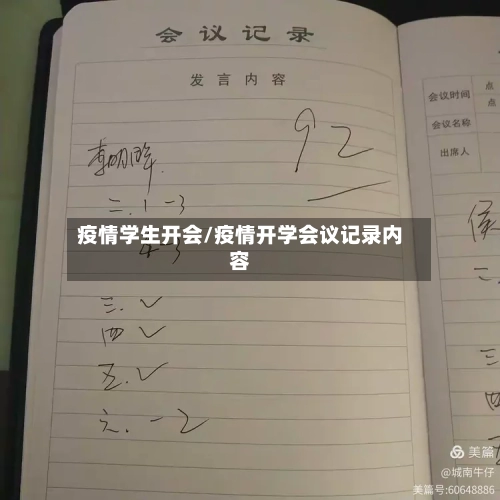 会议记录
发言内容
92
二.1 -3
疫情学生开会/疫情开学会议记录内
容
三.✓
四 ✓
五.✓
六. -2
会议时间
点
点
会议名称
出席人
侯
二
三
四
美篇
@城南牛仔
美篇号:60648886